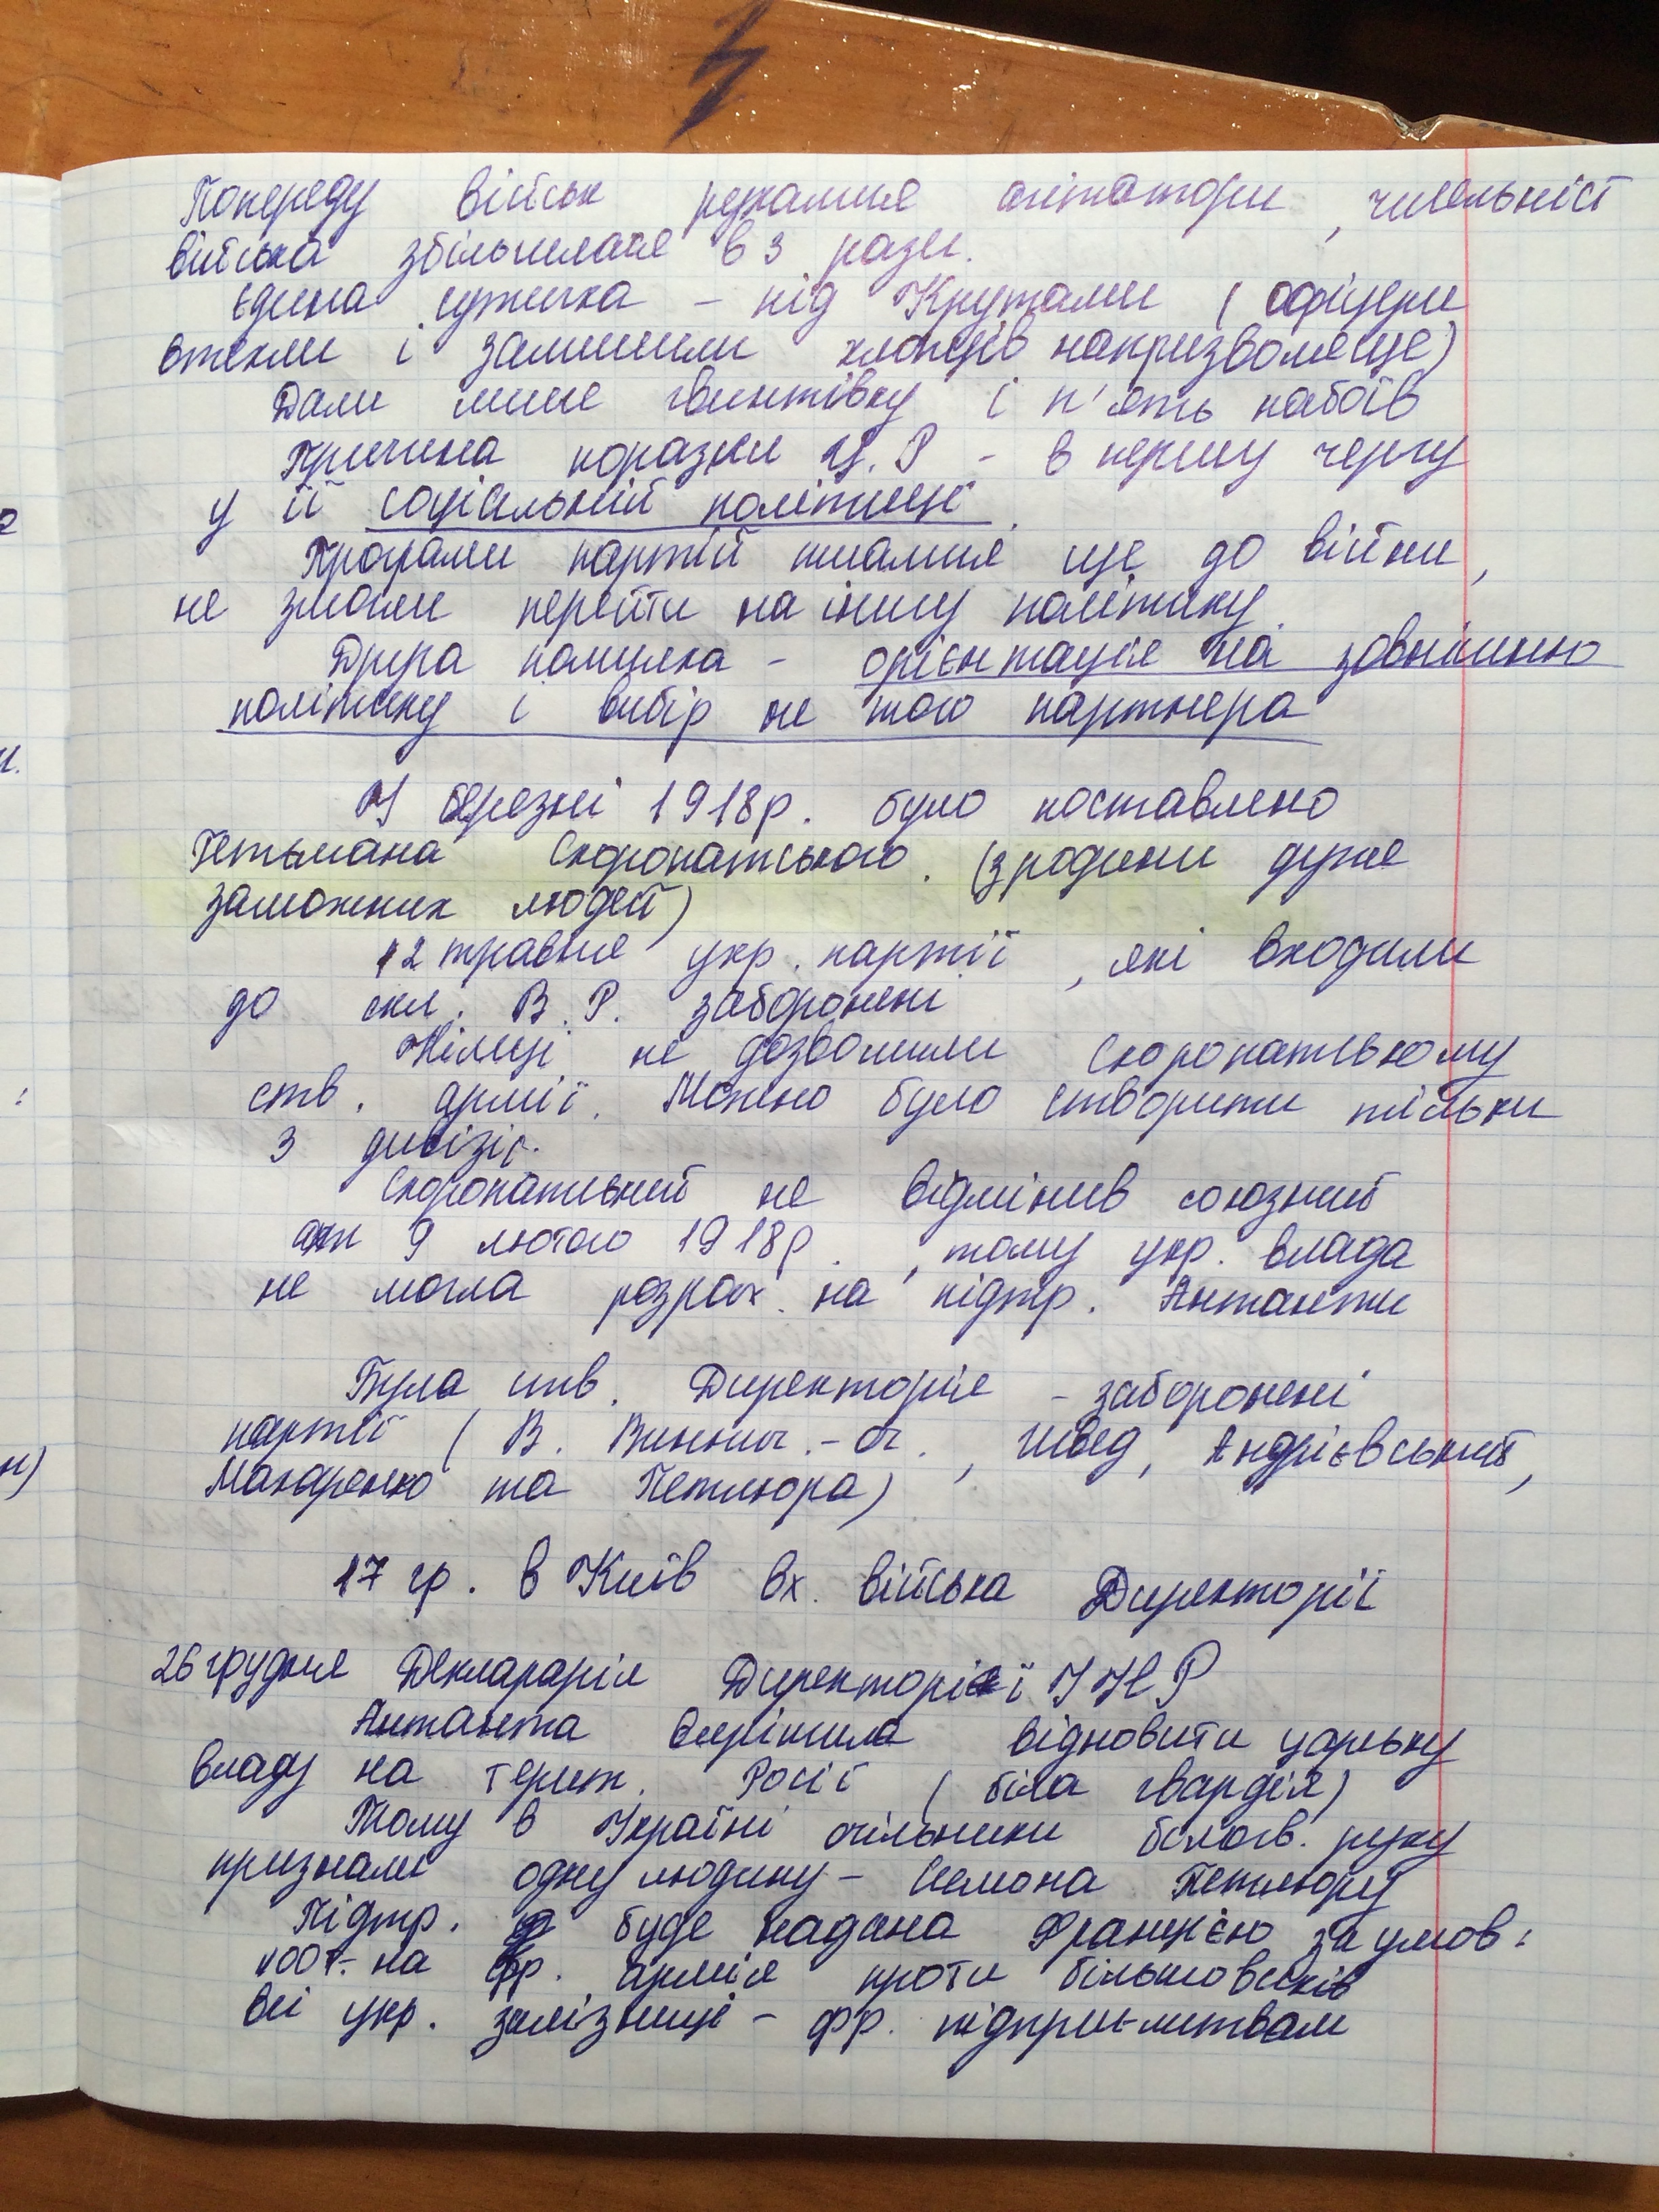 Попереду військ рухалися агітатори, чисельніст
війська збільшилася в 3 рази.
Єдина сутичка - під Крутами (офіцери
втекли і залишили хлопців напризволяще)
Дали лише гвинтівку і п'ять набоїв
Причина поразки Ц.Р - в першу чергу
у її соціальній політиці.
Програми партій писалися ще до війни,
не змогли перейти на іншу політику.
Друга помилка - орієнтація на зовнішню
політику і вибір не того партнера
У березні 1918р. було поставлено
Гетьмана Скоропатського. (з родини дуже
заможних людей)
12 травня укр. партії, які входили
до скл. В.Р. заборонені
Німці не дозволили Скоропатському
ств. армії. Можно було створити тільки
3 дивізії.
Скоропатський не відмінив союзний
акт 9 лютого 1918р., тому укр. влада
не могла розрах. на підтр. Антанти
Була ств. Директорія - заборонені
партії (В. Виннич.-ог., Швед, Андрієвський,
Макаренко та Петлюра)
17 гр. в Київ вх. війська Директорії
26 грудня Декларарія Директорії УНР
Антанта вирішила відновити царську
владу на терит. Росії (біла гвардія)
Тому в Україні очільники білогв. руху
признали одну людину - Семона Петлюру
Підтр. буде надана Францією за умов:
100т. на фр. армія проти більшовиків
всі укр. залізниці - фр. підпри-мствам